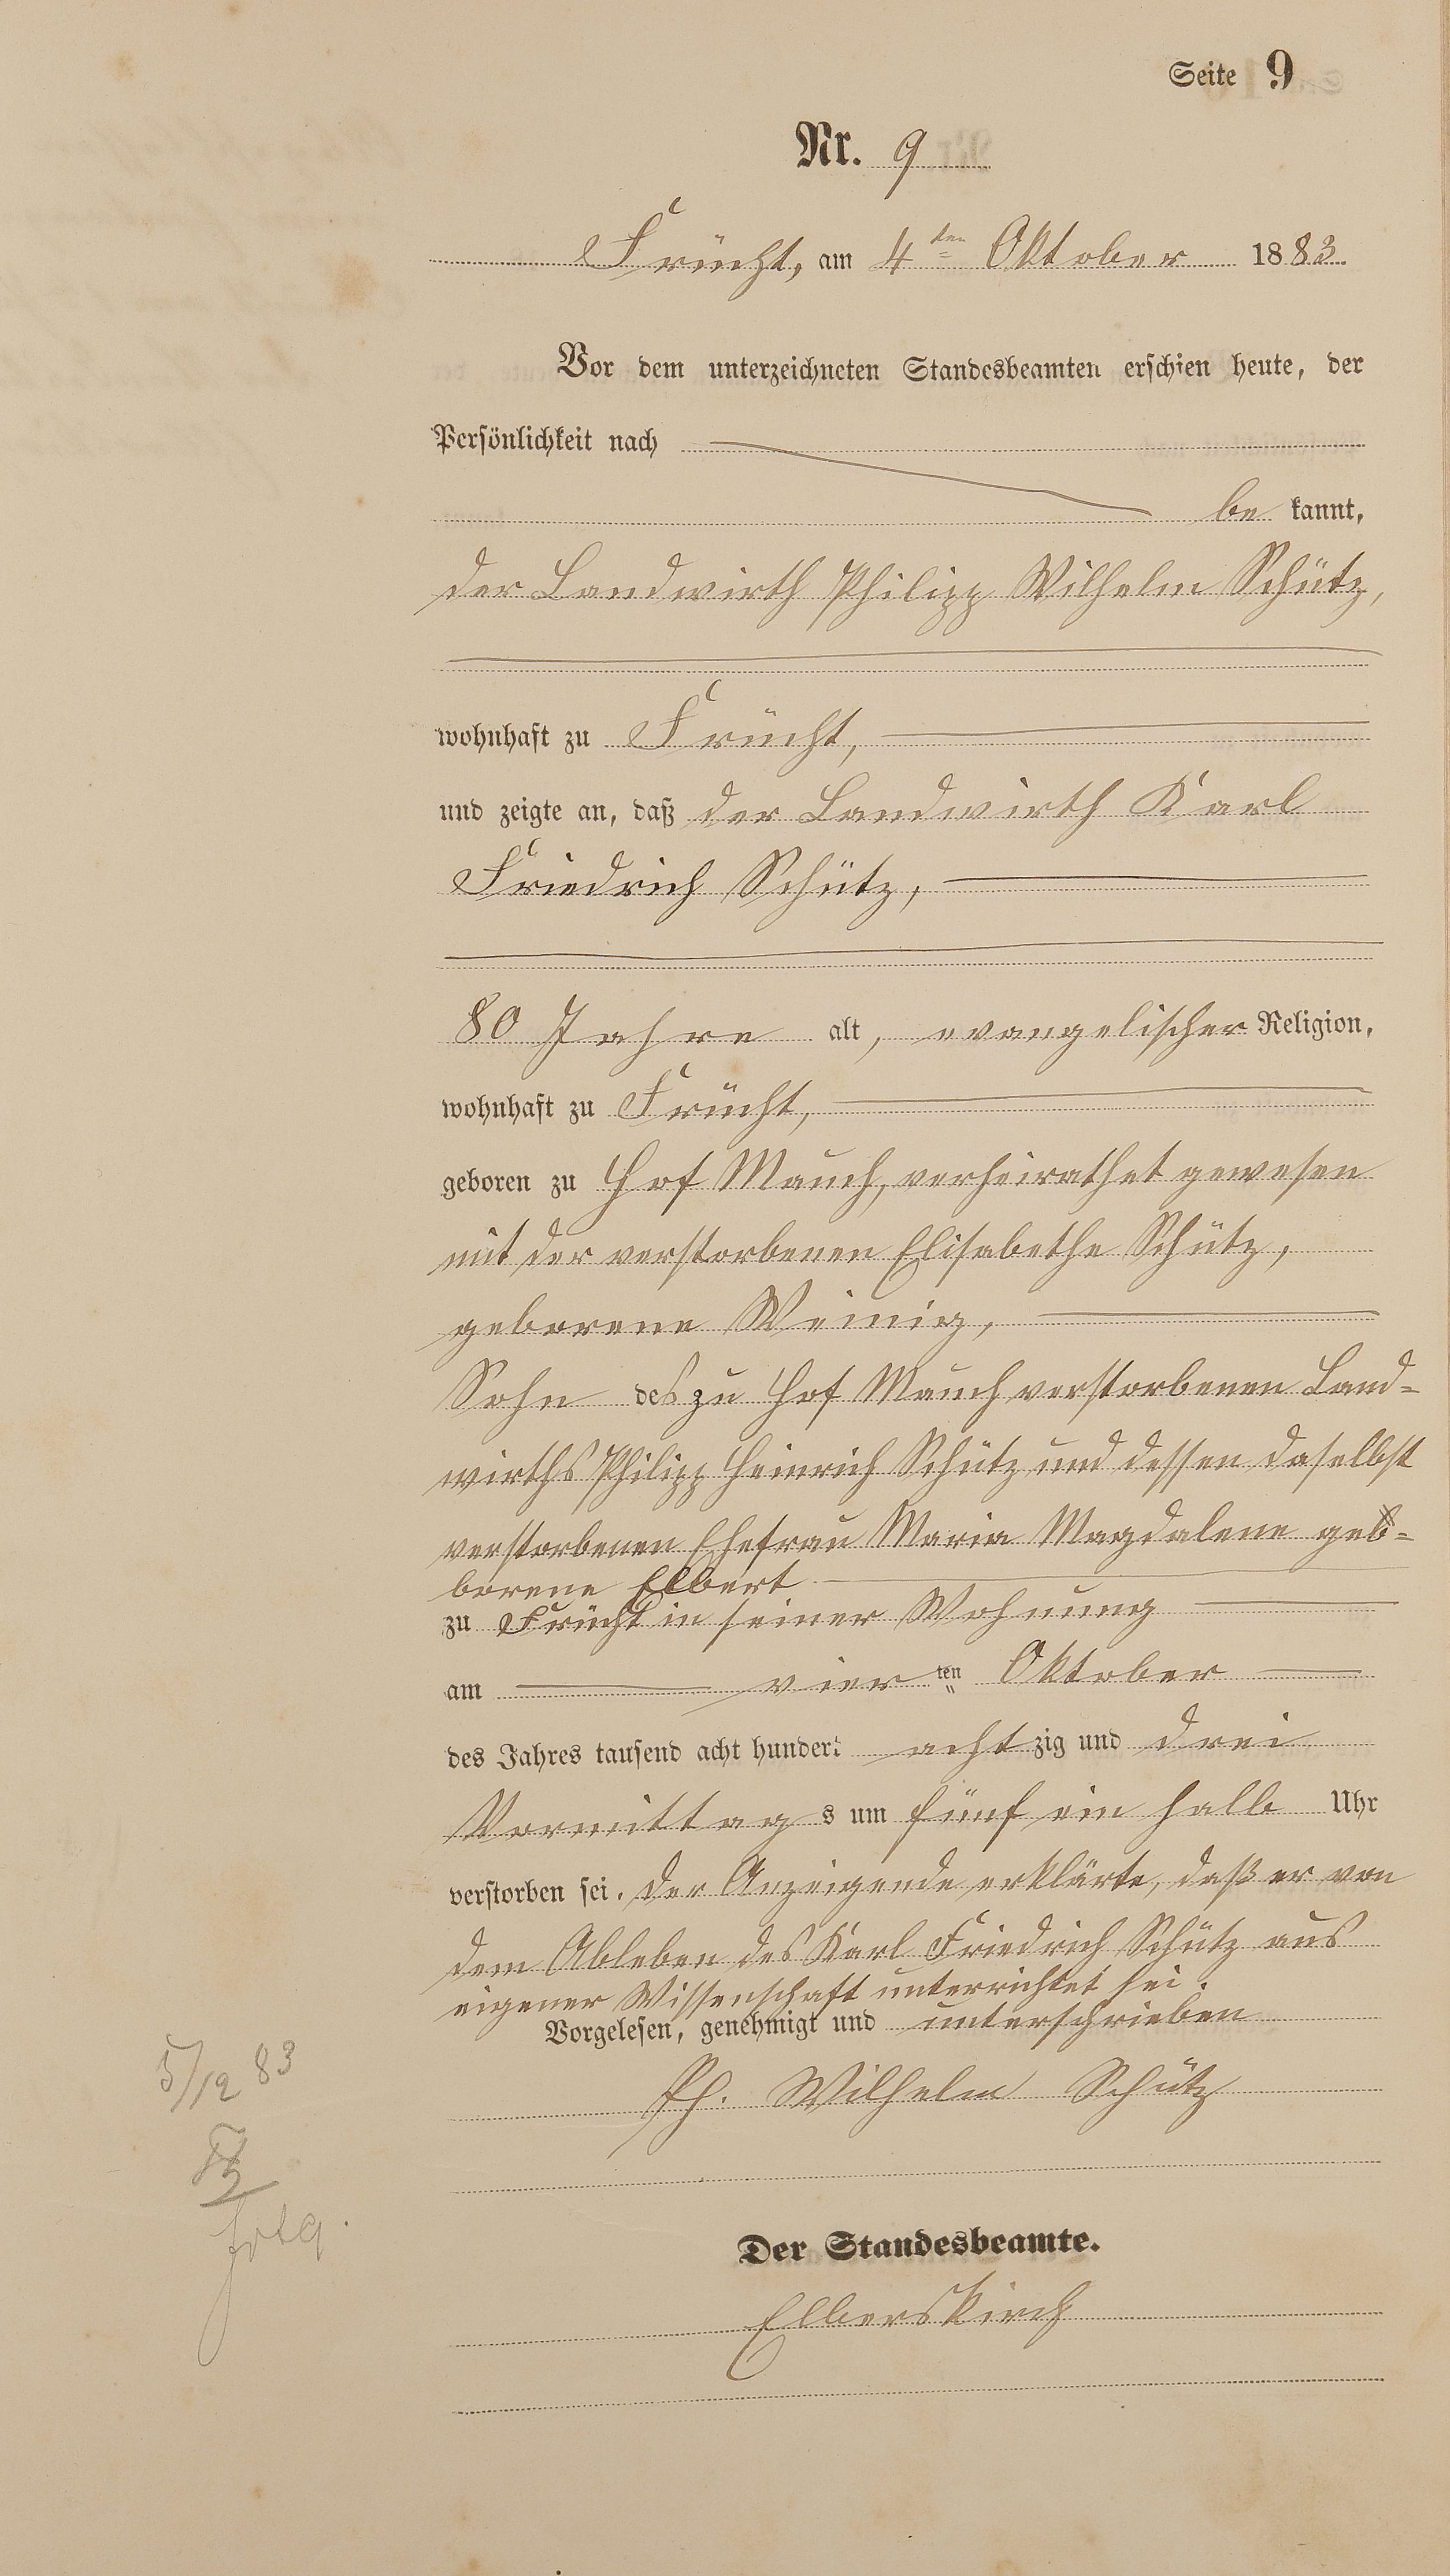 Seite 9
Nr. 9
Frücht, am 4ten Oktober 1883.
Vor dem unterzeichneten Standesbeamten erschien heute, der
Persönlichkeit nach
be kannt,
der Landwirth Philipp Wilhelm Schütz,
wohnhaft zu Frücht,
und zeigte an, daß der Landwirth Karl
Friedrich Schütz,
80 Jahre alt, evangelischer Religion,
wohnhaft zu Frücht,
geboren zu Hof Mauch, verheirathet gewesen
mit der verstorbenen Elisabethe Schütz,
geborene Weinig,
Sohn des zu Hof Mauch verstorbenen Land-
wirths Philipp Heinrich Schütz und dessen daselbst
verstorbenen Ehefrau Maria Magdalene ge-
borene Elbert
zu Frücht in seiner Wohnung
am vier ten Oktober
des Jahres tausend acht hundert acht zig und drei
Vormittag s um fünf ein halb Uhr
verstorben sei. Der Anzeigende erklärte, daß er von
dem Ableben des Karl Friedrich Schütz aus
eigener Wissenschaft unterrichtet sei.
Vorgelesen, genehmigt und unterschrieben
Ph. Wilhelm Schütz
5/12 83
Der Standesbeamte.
Elberskirch